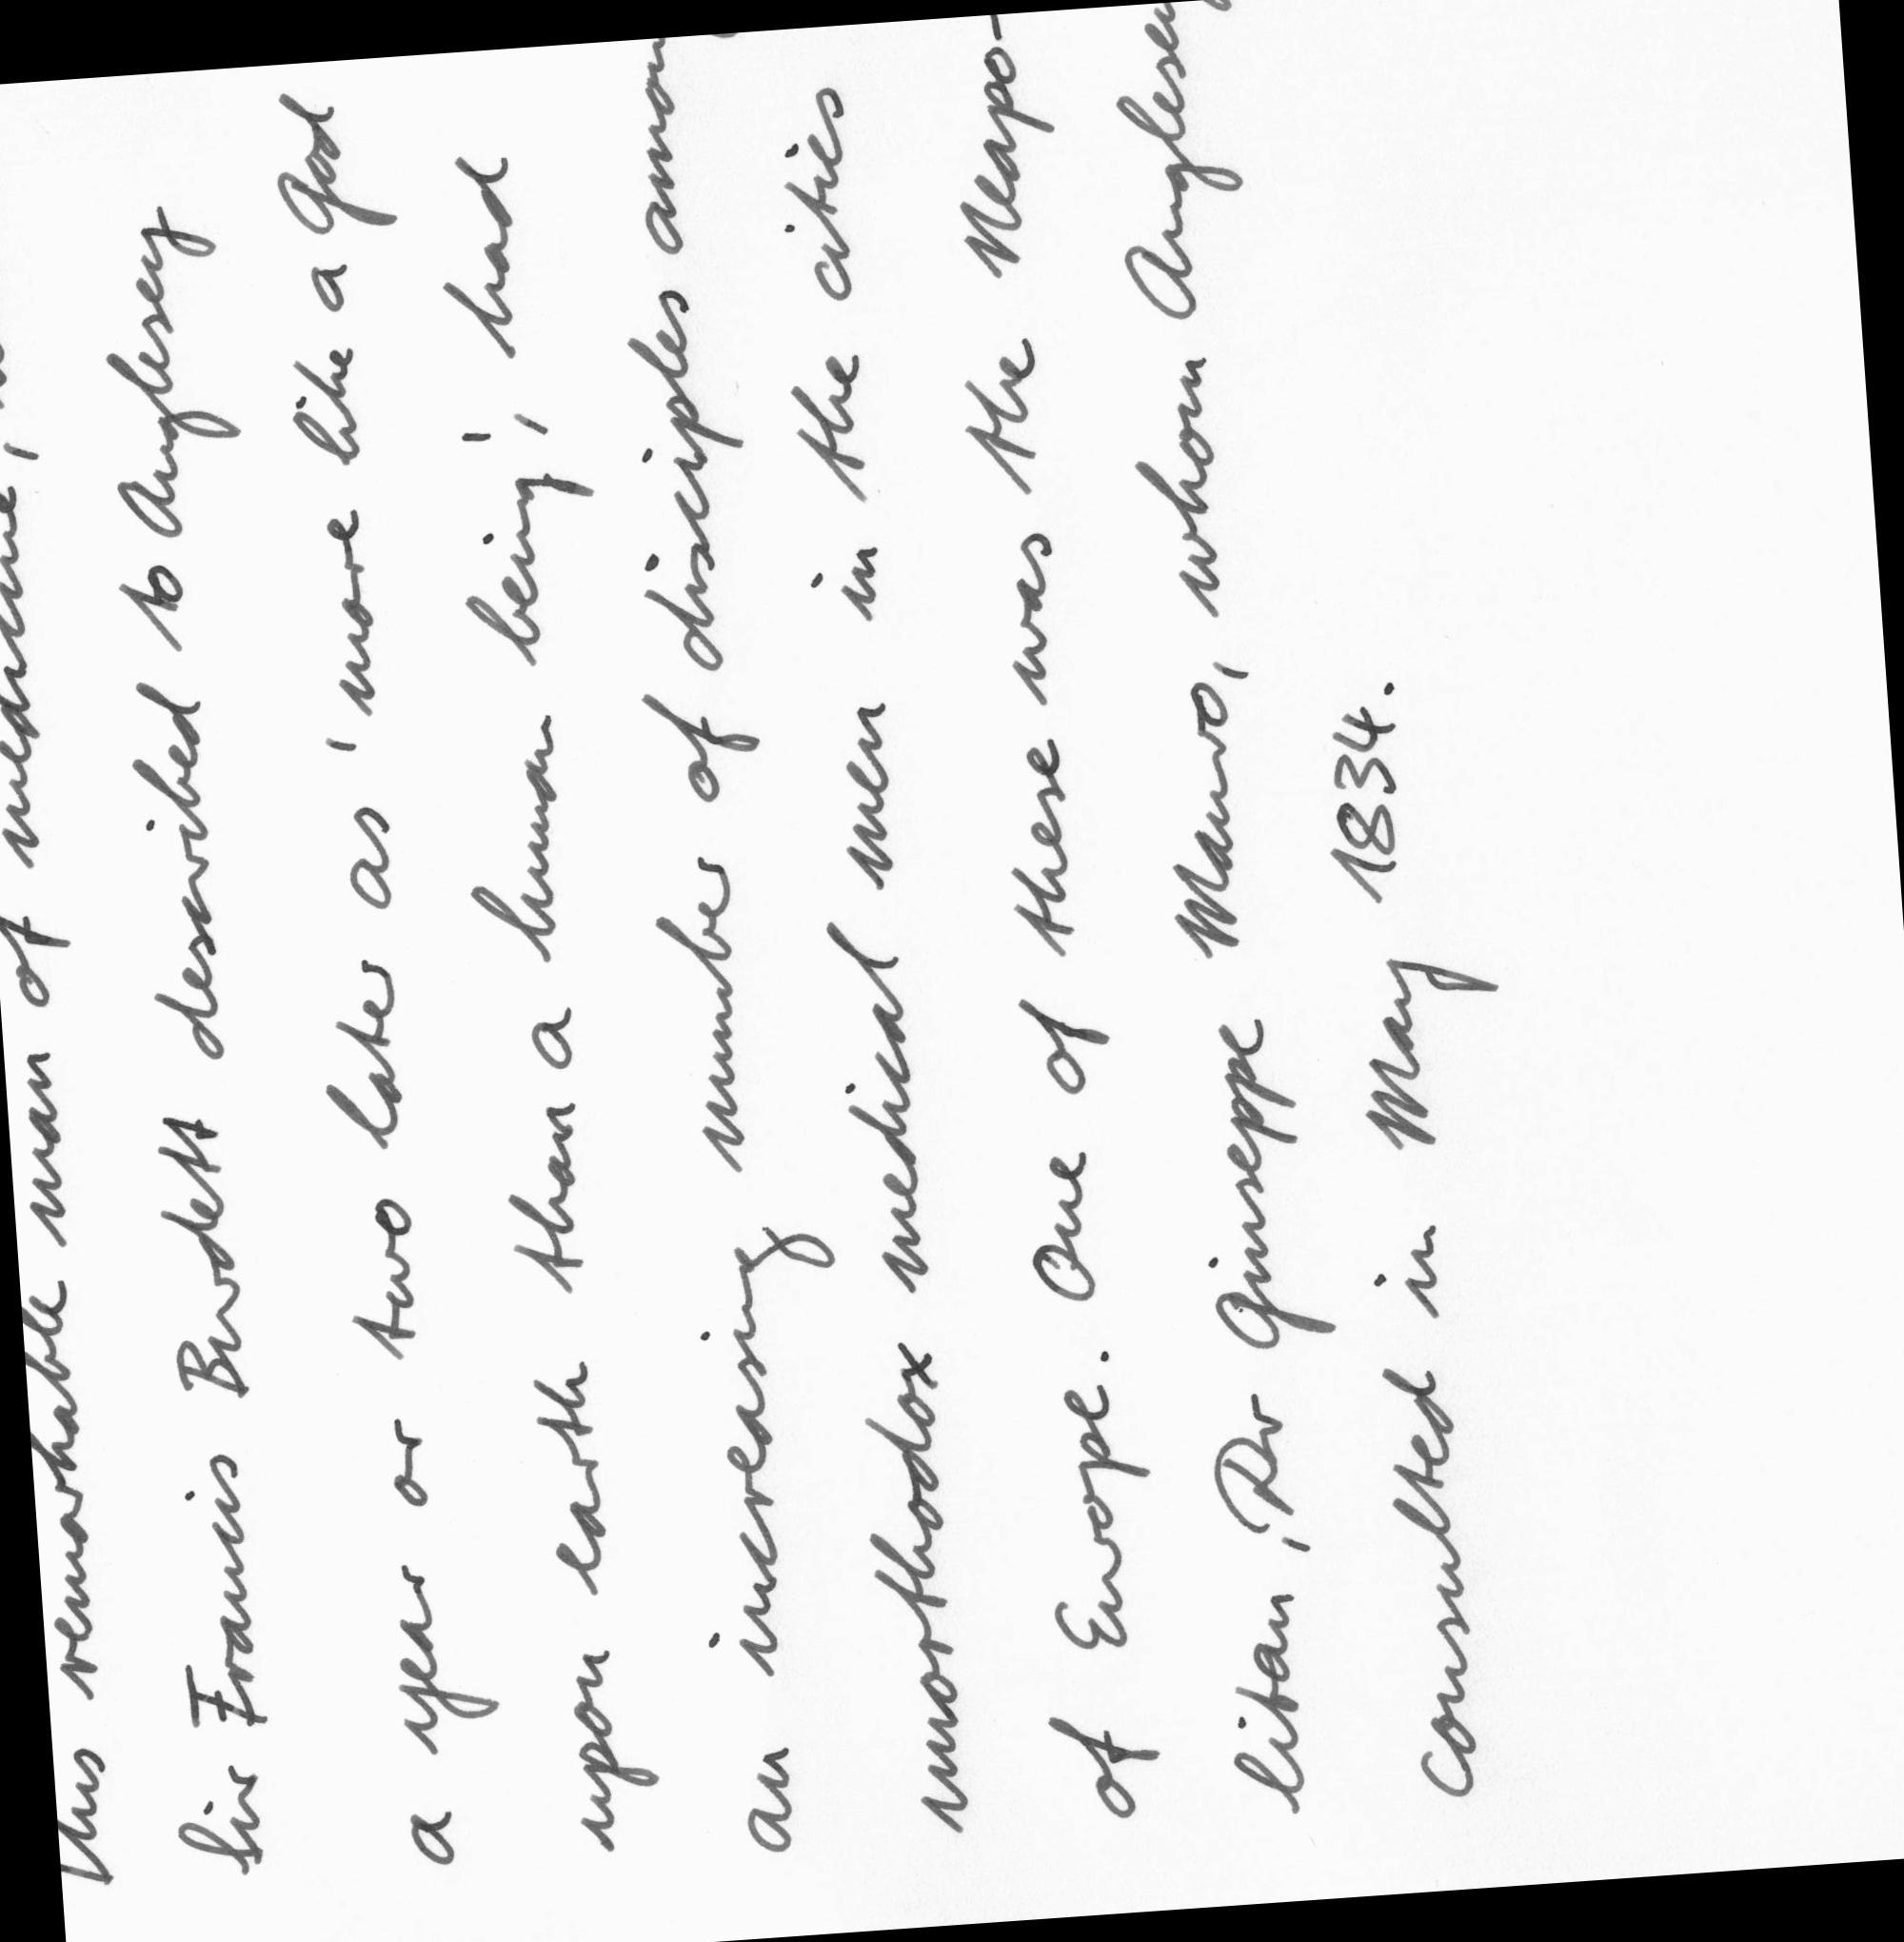 This remarkable man of medicine,
Sir Francis Burdett described to Anglesey
a year or two later as 'more like a God
upon earth than a human being', had
an increasing number of disciples
unorthodox medical men in the cities
of Europe. One of these was the Neapo-
litan, Dr Giuseppe Mauro, whom Anglesey
consulted in May 1834.